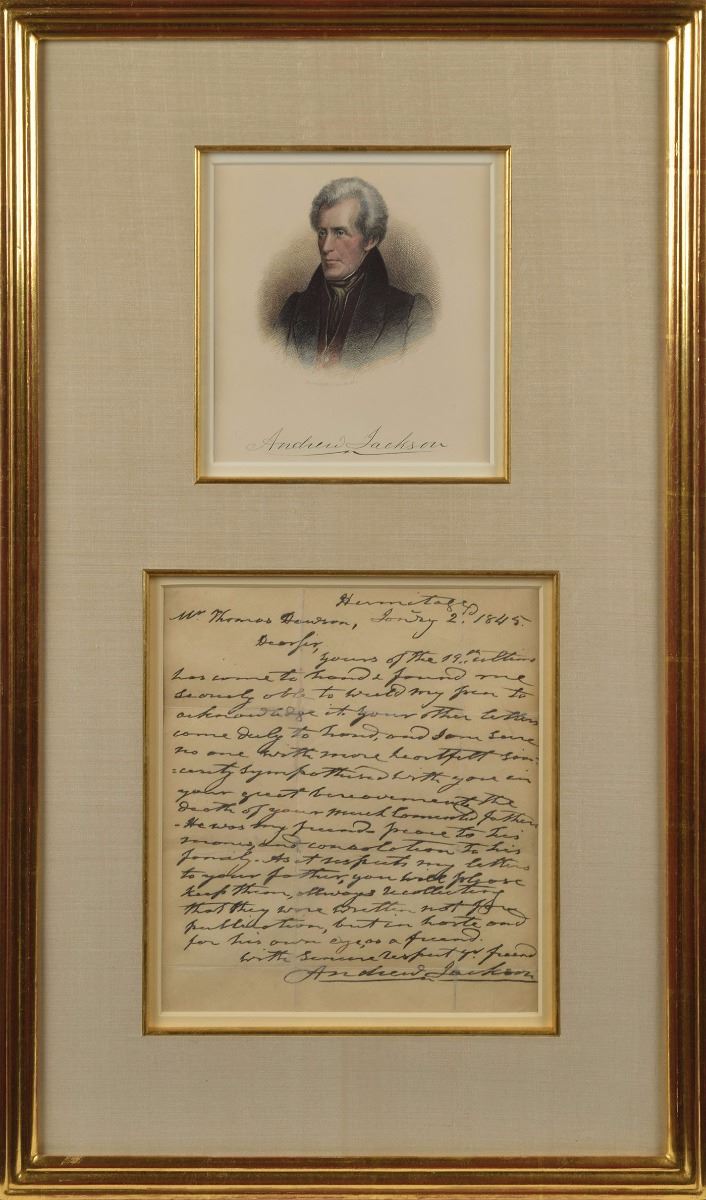 Andrew Jackson
Hermitage,
Mr Thomas Dawson, Janry 2d. 1845.
Dear sir,
yours of the 19th ultimo
has come to hand & found me
scarcely able to wield my pen to
acknowledge it. your other letters
came duly to hand, and I am sure
no one with more heartfelt sin-
=cerity sympathised with you in
your great bereavement, the
death of your much lamented father
- He was my friend - peace to his
manes, and consolation to his
family - As it respects my letters
to your father, you will please
keep them, always recollecting
that they were written not for
publication, but in haste and
for his own eye, as a friend.
with sincere respect yr friend
Andrew Jackson